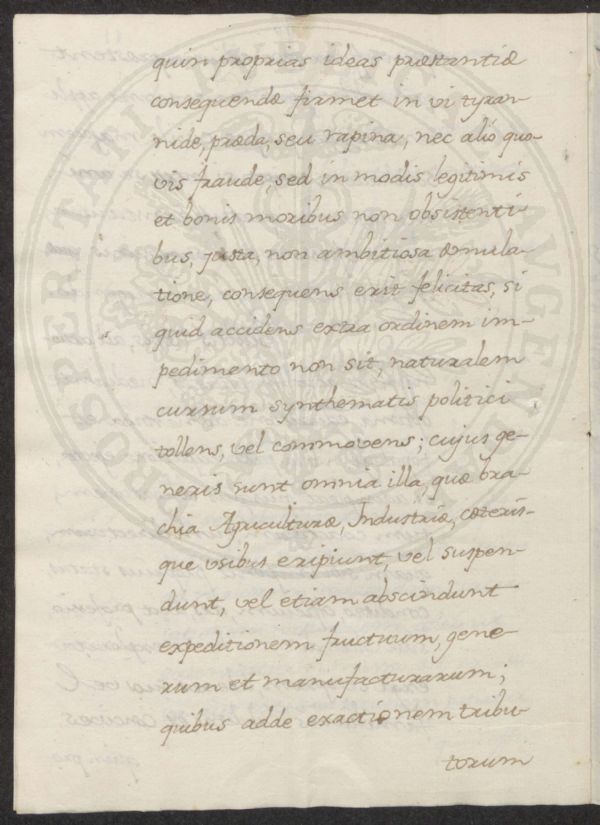 quin proprias ideas præstantiæ
consequendæ firmet in vi tyran-
nide, præda, seu rapina, nec alió quo-
vis fraude, sed in modis legitimis
et bonis moribus non obsistenti-
bus, justa, non ambitiosa æmula-
tione, consequens erit felicitas, si
quid accidens extra ordinem im-
pedimento non sit, naturalem
cursum synthematis politici
tollens, vel commovens; cujus ge-
neris sunt omnia illa, quæ bra-
chia Agriculturæ, Industriæ, cæteris-
que usibus eripiunt, vel suspen-
dunt, vel etiam abscindunt
expeditionem fructuum, gene-
rum et manufacturarum;
quibus adde exactionem tribu-
torum
PROSPERITATI PUBLICÆ AUGENDÆ